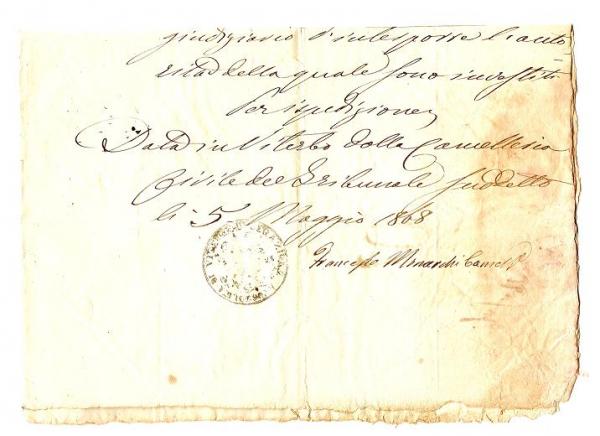 giudiziario d'interporre l'auto
rità della quale sono investiti
Per ispedizione
Data in Viterbo dalla Cancelleria
Civile del Tribunale suddetto
li 5 Maggio 1868
Francesco Monarchi Cancel